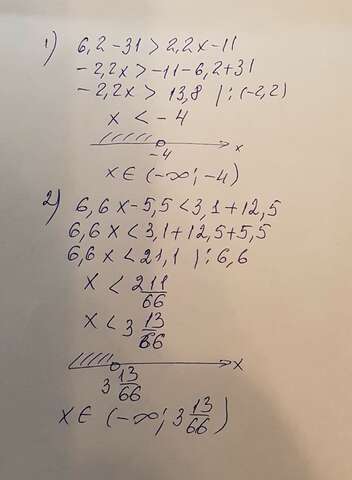 1) 6,2-31>2,2x-11
-2,2x>-11-6,2+31
-2,2x>13,8 |:(-2,2)
x<-4
-4 x
x∈(-∞;-4)
2) 6,6x-5,5<3,1+12,5
6,6x<3,1+12,5+5,5
6,6x<21,1 |:6,6
x<211/66
x<3 13/66
3 13/66 x
x∈(-∞;3 13/66)